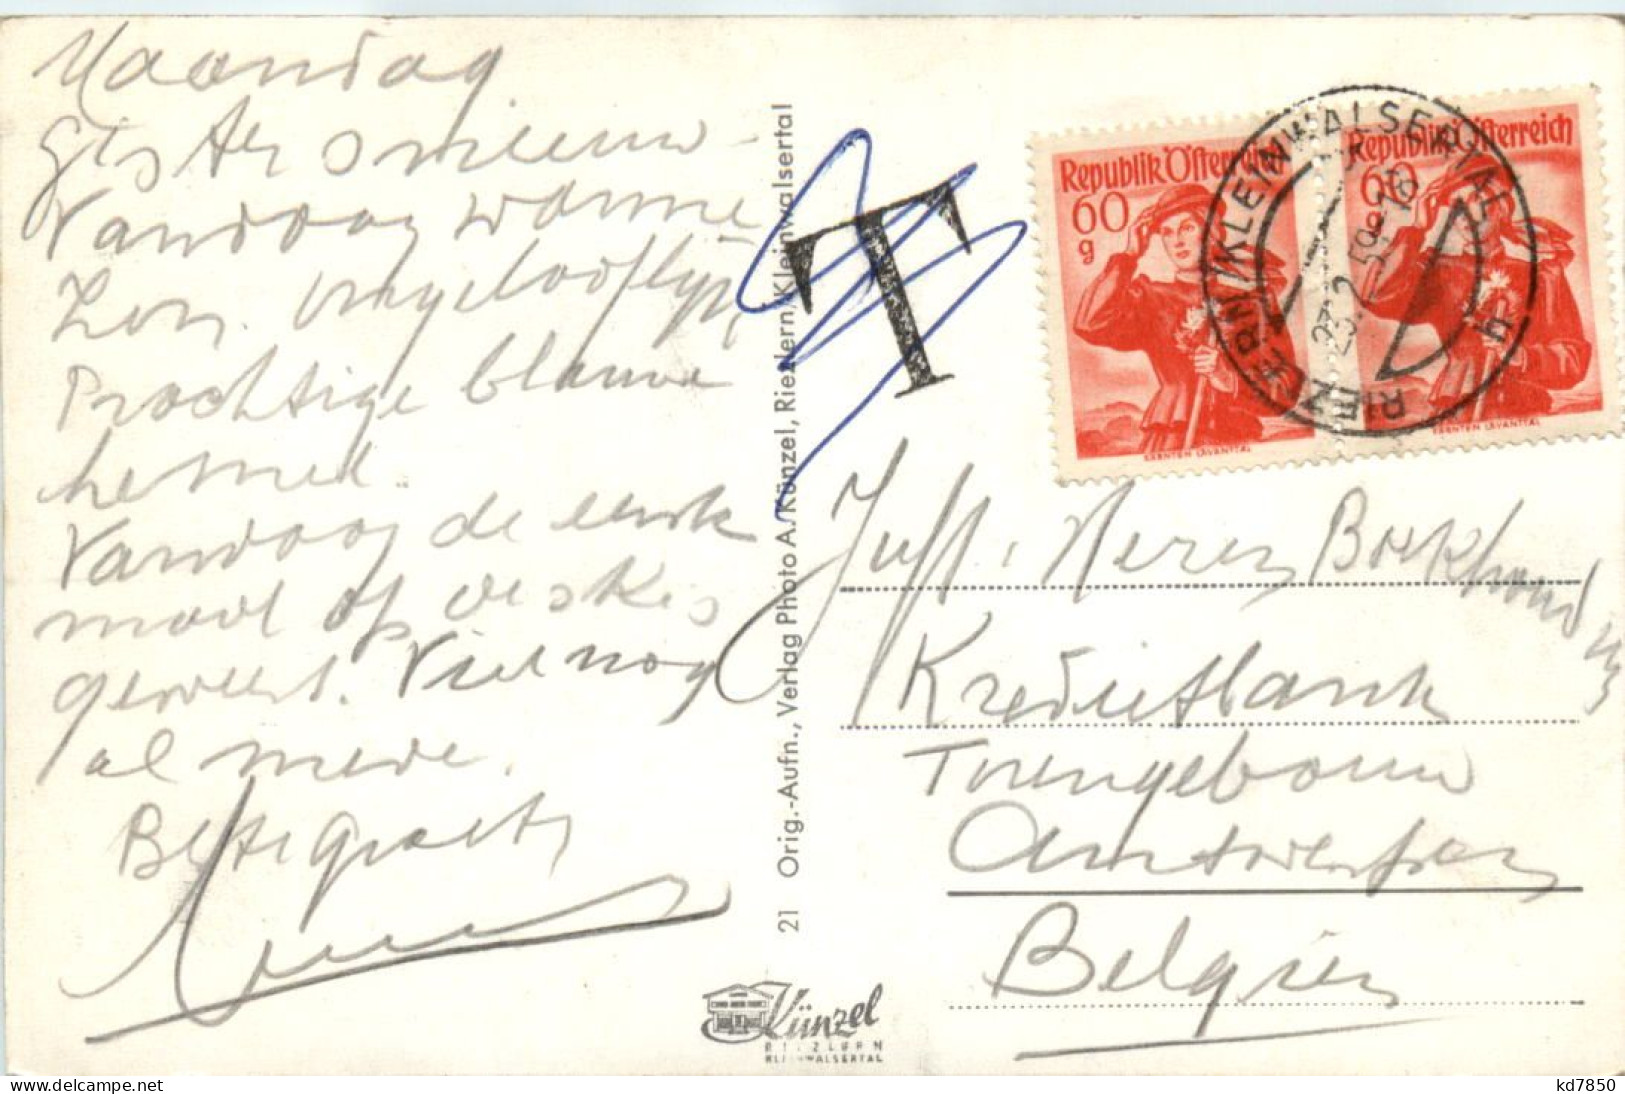 Maandag
Gisteren sneeuw -
Vandaag warme
Zon. Ongelooflijk
Prachtige blauwe
hemel.
Vandaag de eerste
maal op de skis
geweest. Viel nog
al mede.
Beste groeten
21 Orig.-Aufn., Verlag Photo A. Künzel, Riezlern, Kleinwalsertal
Künzel
RIEZLERN
KLEINWALSERTAL
T
Republik Österreich
60
g
KÄRNTEN LAVANTTAL
Republik Österreich
60
g
KÄRNTEN LAVANTTAL
RIEZLERN (KLEINWALSERTAL)
23. 2. 59 - 18
Juff.
Kredietbank
Torengebouw
Antwerpen
Belgien
kd7850